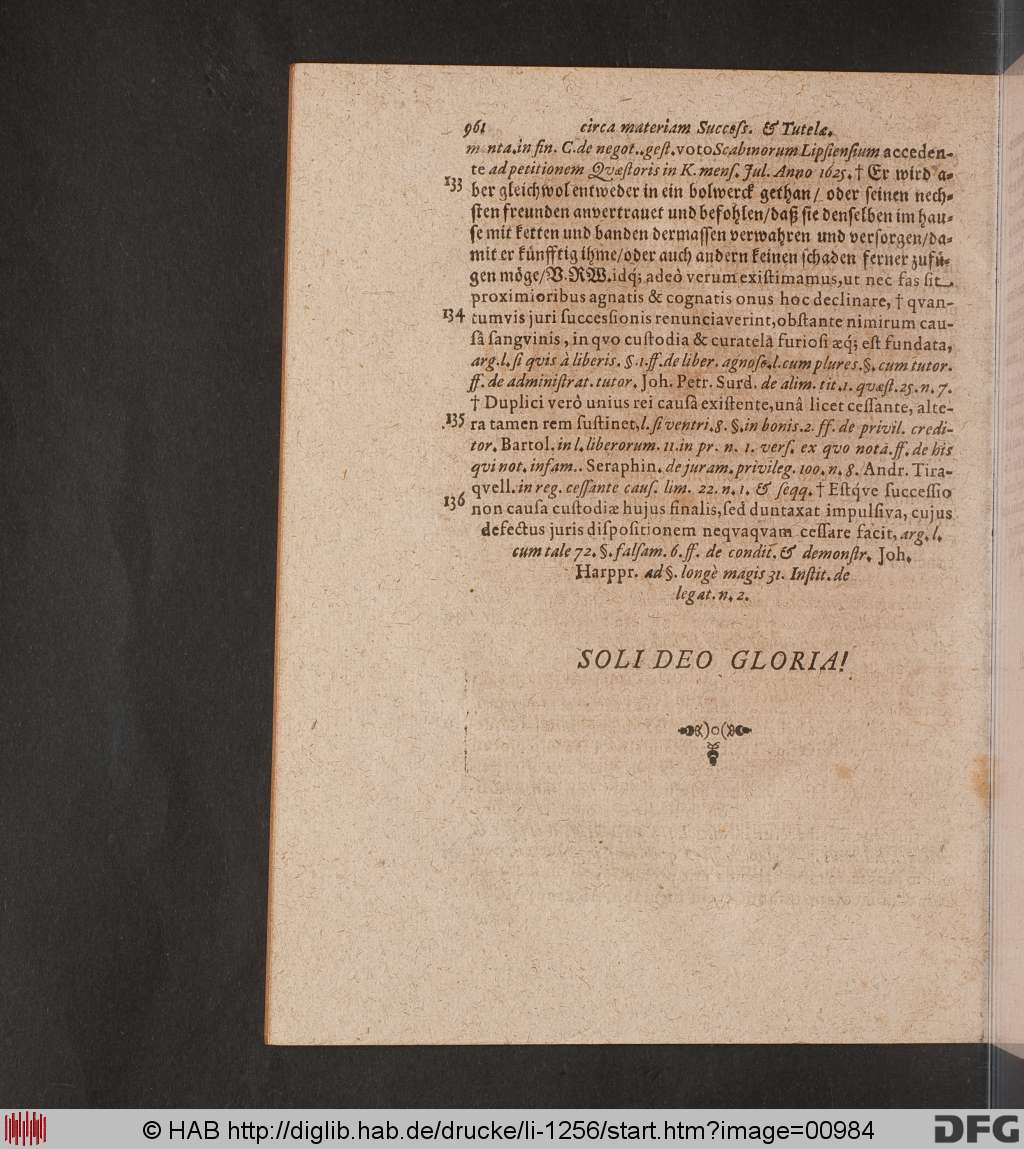 961 circa materiam Succeſs. & Tutelæ.
menta. in fin. C. de negot.. geſt. voto Scabinorum Lipſienſium acceden-
te ad petitionem Qvæſtoris in K. menſ. Jul. Anno 1625. † Er wird a-
133 ber gleichwol entweder in ein bolwerck gethan/ oder ſeinen nech-
ſten freunden anvertrauet und befohlen/daß ſie denſelben im hau-
ſe mit ketten und banden dermaſſen verwahren und verſorgen/da-
mit er künfftig ihme/oder auch andern keinen ſchaden ferner zufü-
gen möge/V. RW. idq; adeò verum exiſtimamus,ut nec fas ſit
proximioribus agnatis & cognatis onus hoc declinare, † qvan-
134 tumvis juri ſucceſſionis renunciaverint,obſtante nimirum cau-
ſâ ſangvinis, in qvo cuſtodia & curatela furioſi æq́; eſt fundata,
arg. l. ſi qvis à liberis. §. 1. ff. de liber. agnoſc. l. cum plures. §. cum tutor.
ff. de adminiſtrat. tutor. Joh. Petr. Surd. de alim. tit. 1. qvæſt. 25. n. 7.
† Duplici verò unius rei cauſâ exiſtente,unâ licet ceſſante, alte-
135 ra tamen rem ſuſtinet,l. ſi ventri. 8. §. in bonis. 2. ff. de privil. credi-
tor. Bartol. in l. liberorum. 11. in pr. n. 1. verſ. ex qvo notâ. ff. de his
qvi not. infam.. Seraphin. de juram. privileg. 100. n. 8. Andr. Tira-
qvell. in reg. ceſſante cauſ. lim. 22. n. 1. & ſeqq. † Eſtq́ve ſucceſſio
136 non cauſa cuſtodiæ hujus finalis,ſed duntaxat impulſiva, cujus
defectus juris diſpoſitionem neqvaqvam ceſſare facit, arg. l.
cum tale 72. §. falſam. 6. ff. de condit. & demonſtr. Joh.
Harppr. ad §. longè magis 31. Inſtit. de
legat. n. 2.
SOLI DEO GLORIA!
© HAB http://diglib.hab.de/drucke/li-1256/start.htm?image=00984
DFG